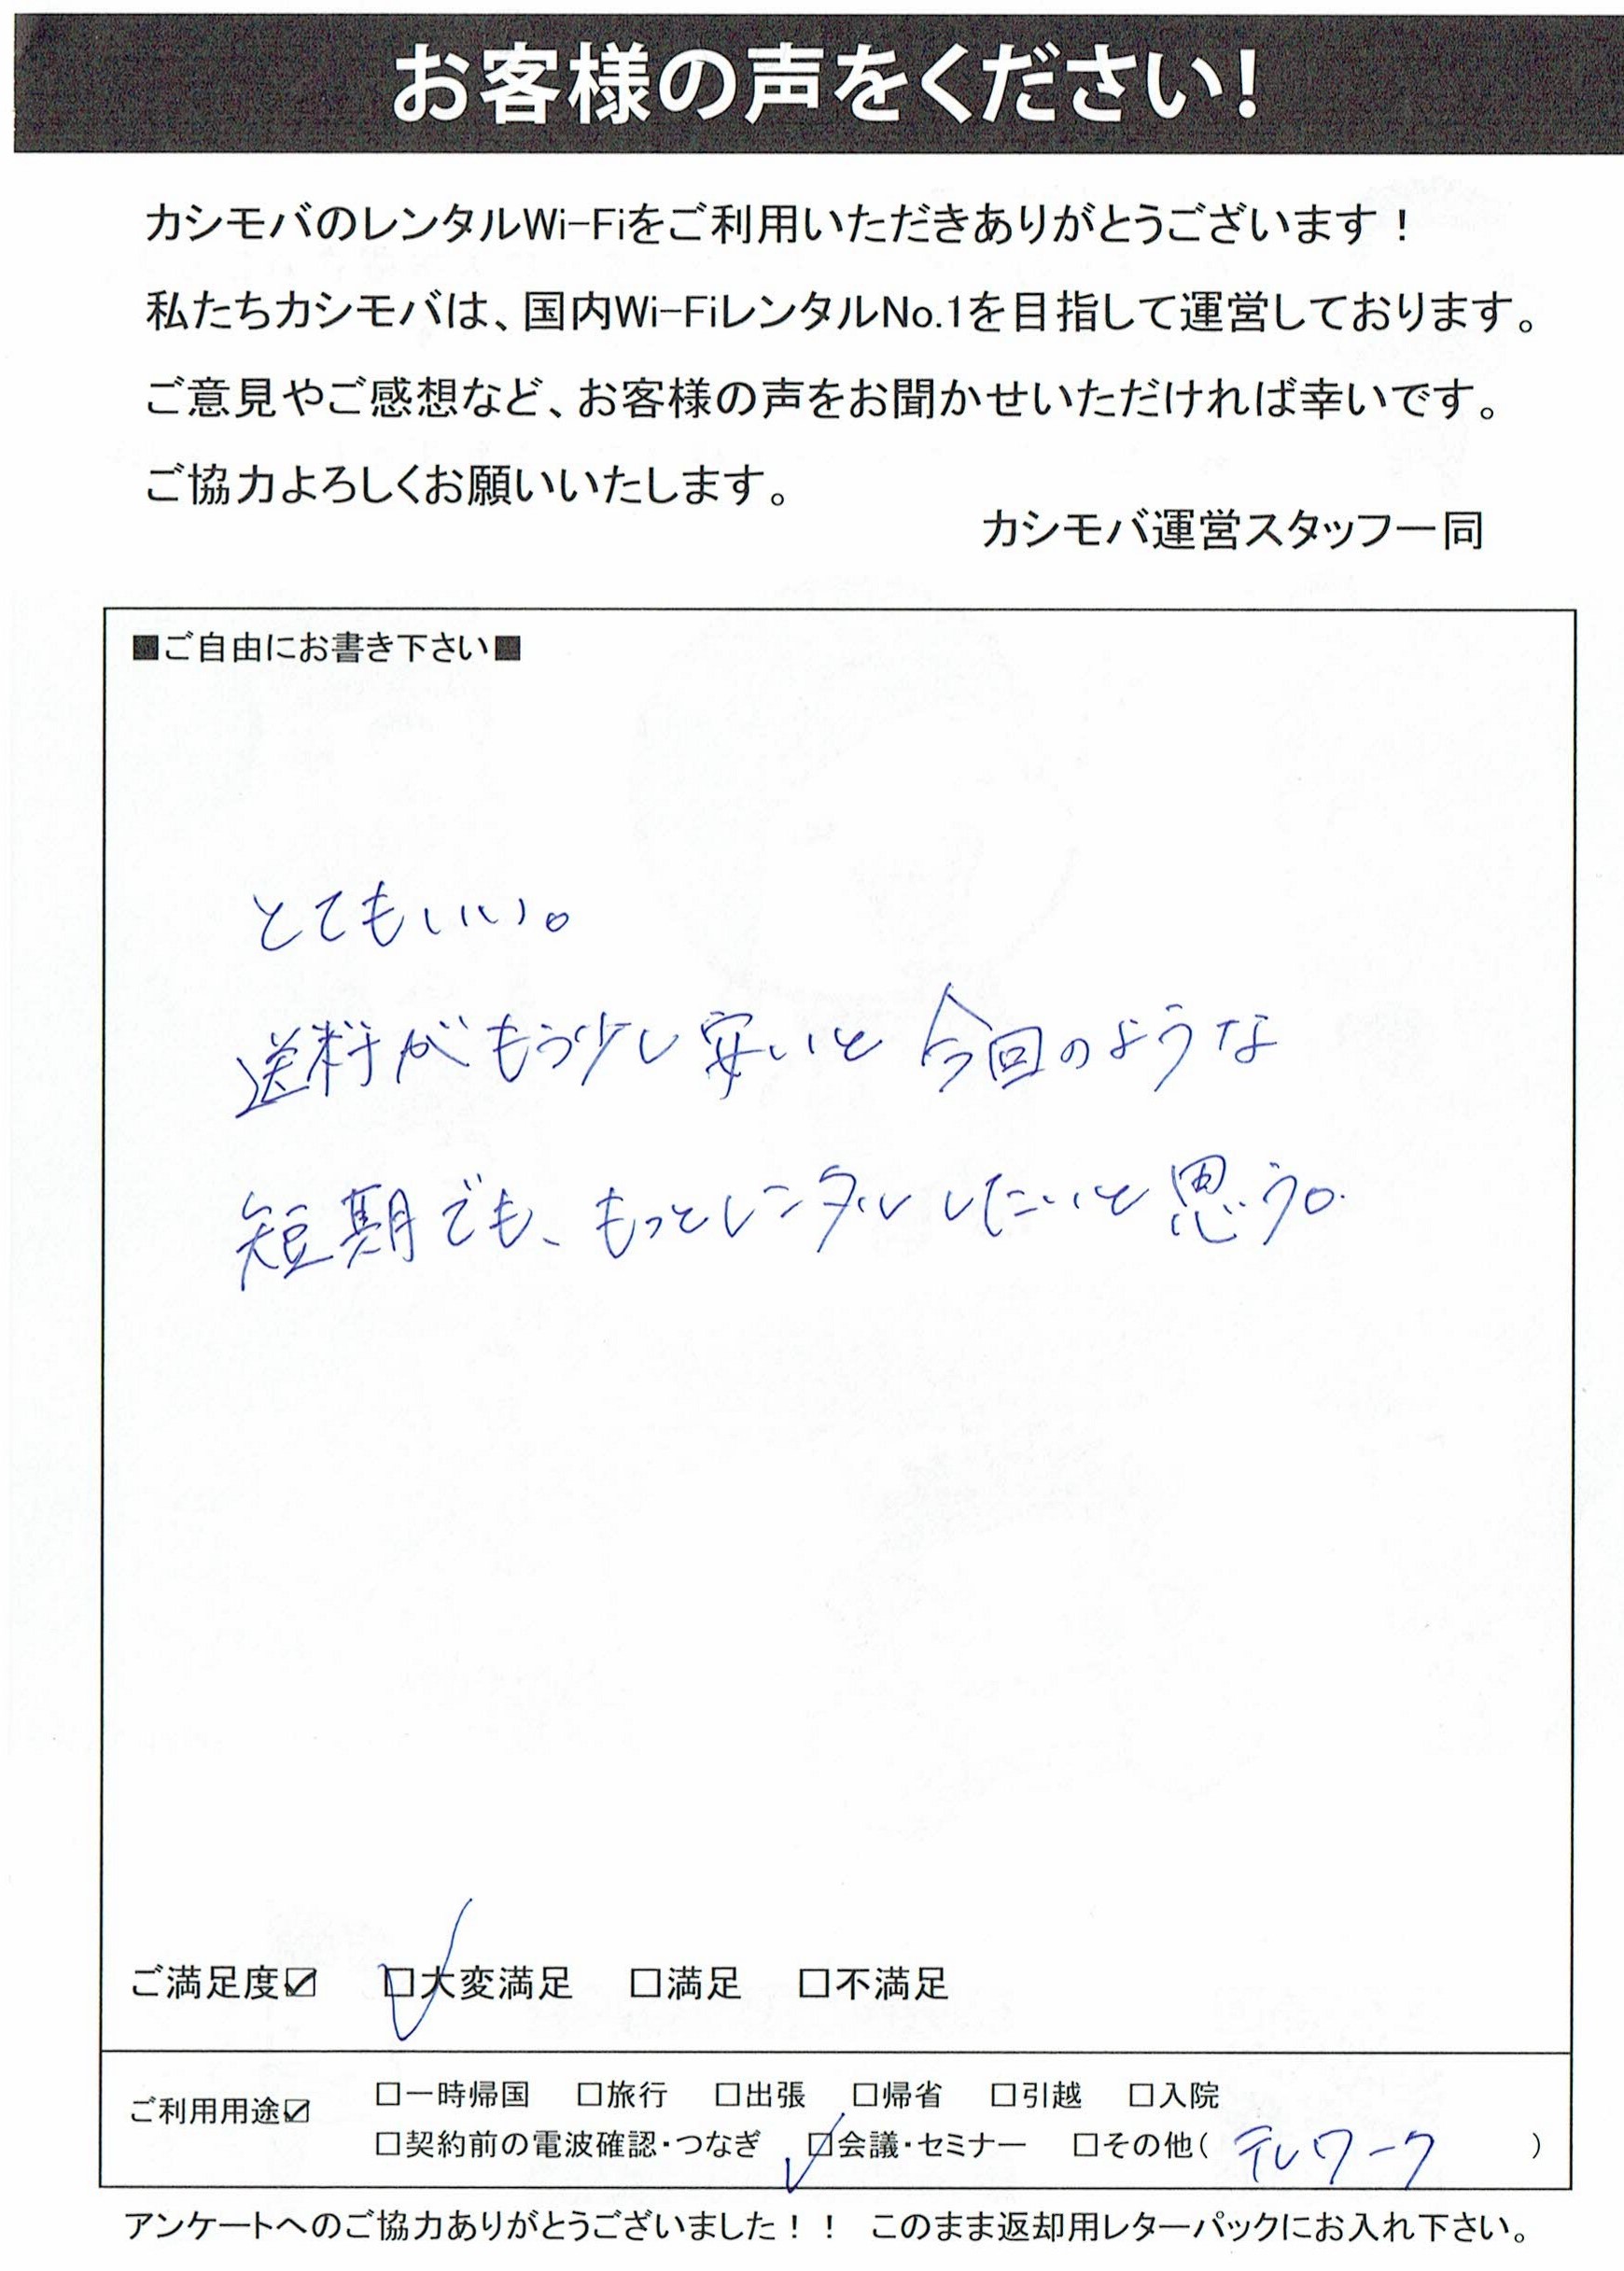 お客様の声をください!
カシモバのレンタルWi-Fiをご利用いただきありがとうございます！
私たちカシモバは、国内Wi-FiレンタルNo.1を目指して運営しております。
ご意見やご感想など、お客様の声をお聞かせいただければ幸いです。
ご協力よろしくお願いいたします。
カシモバ運営スタッフ一同
■ご自由にお書き下さい■
とてもいい。
送料がもう少し安いと今回のような
短期でも、もっとレンタルしたいと思う。
ご満足度☑ □大変満足 □満足 □不満足
ご利用用途☑ □一時帰国 □旅行 □出張 □帰省 □引越 □入院
□契約前の電波確認・つなぎ □会議・セミナー □その他( テレワーク )
アンケートへのご協力ありがとうございました！！ このまま返却用レターパックにお入れ下さい。